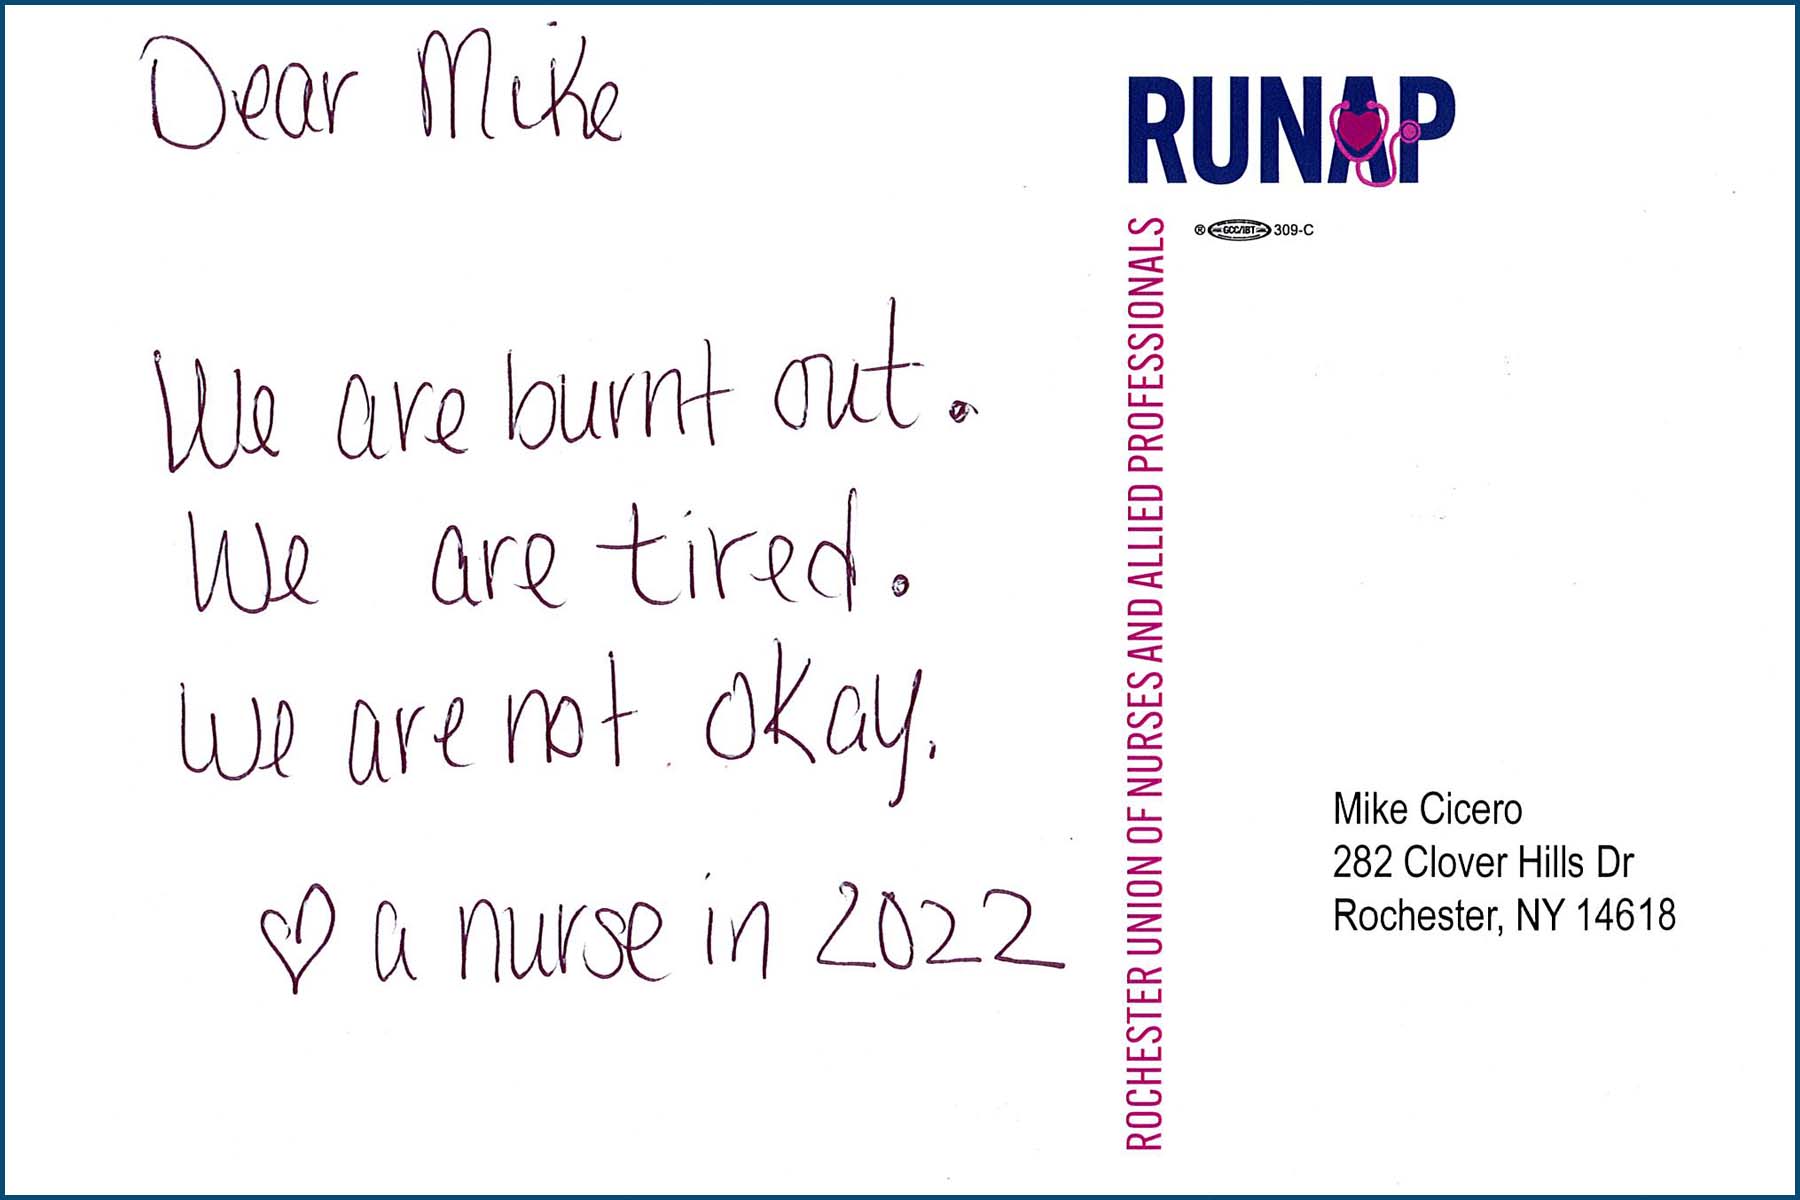 Dear Mike
We are burnt out.
We are tired.
We are not okay.
♡ a nurse in 2022
RUNAP
® GCC/IBT 309-C
ROCHESTER UNION OF NURSES AND ALLIED PROFESSIONALS
Mike Cicero
282 Clover Hills Dr
Rochester, NY 14618